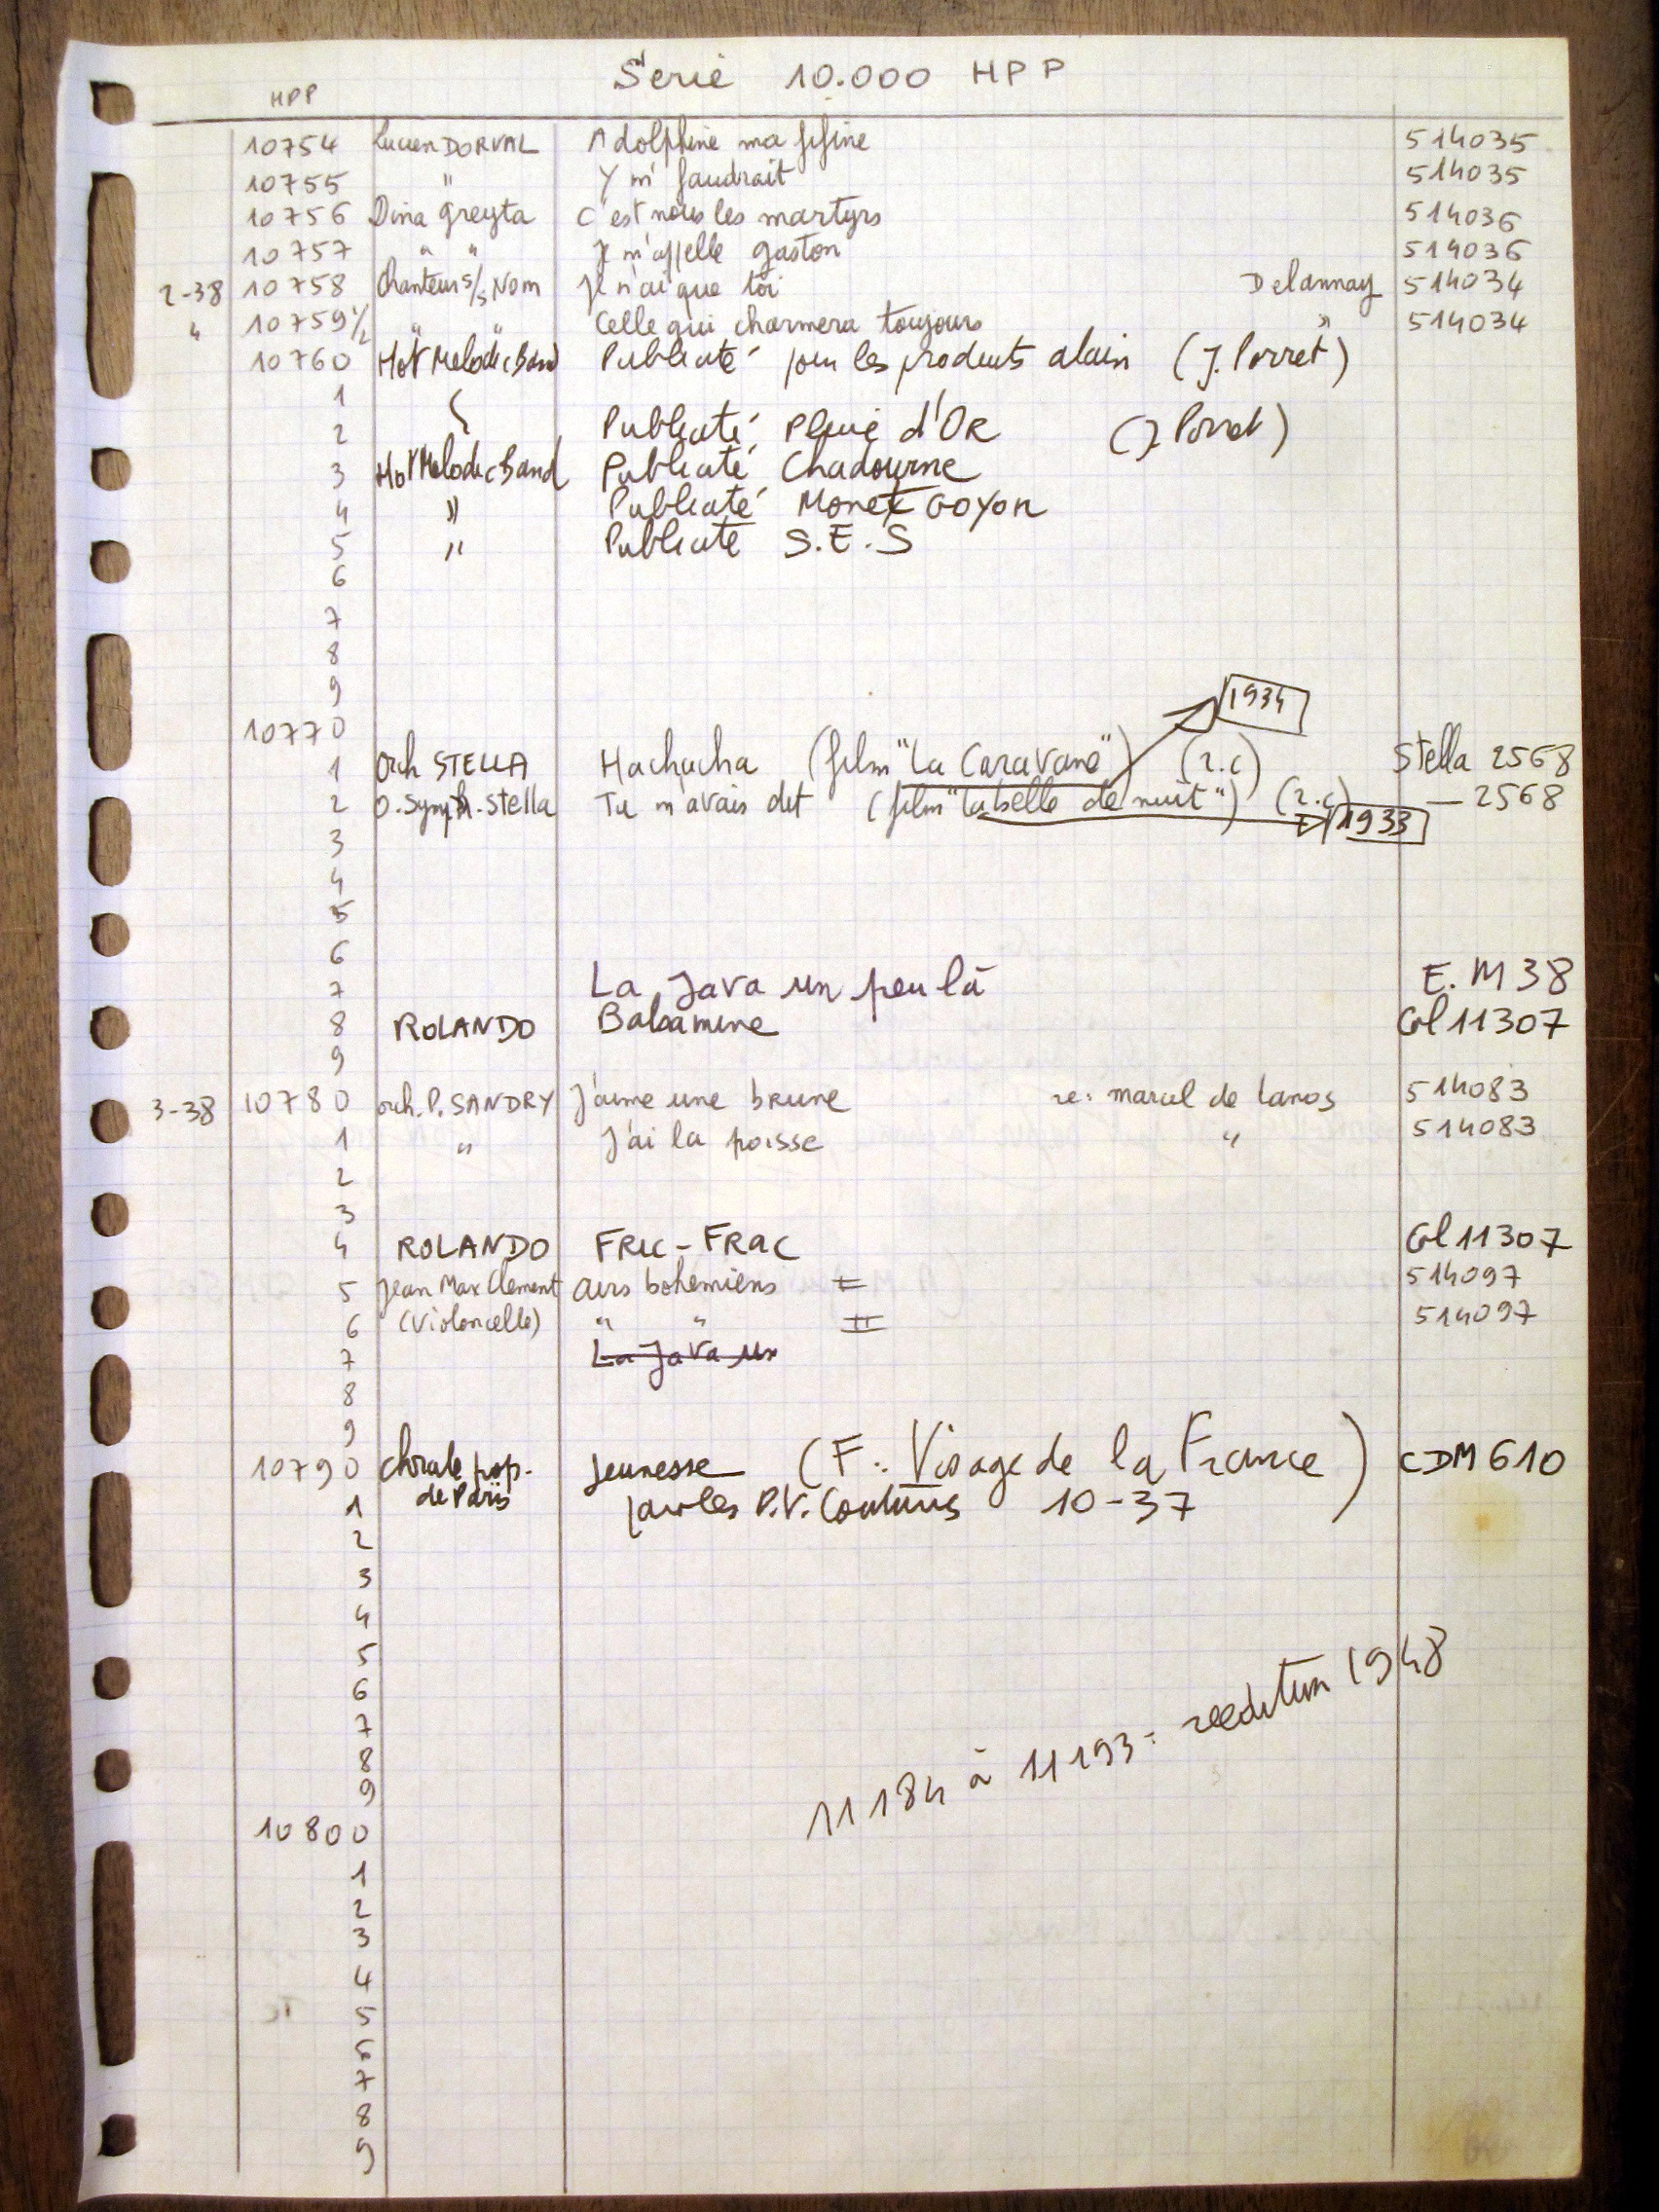 Serie 10.000 HPP
HPP
10754 Lucien DORVAL Adolphine ma fifine 514035
10755 " Y m' faudrait 514035
10756 Dina Greyta C'est nous les martyrs 514036
10757 " " Je m'appelle gaston 514036
2-38 10758 Chanteur s/s Nom Je n'ai que toi Delannay 514034
" 10759 1/2 " " Celle qui charmera toujours " 514034
10760 Hot Melodic Band Publicité pour les produits alain (J. Porret)
1
2 Publicité Pluie d'OR (J Porret)
3 Hot Melodic Band Publicité Chadourne
4 " Publicité Monet GOYON
5 " Publicité S.E.S
6
7
8
9
1934
10770
1 Orch STELLA Hachacha (film "La Caravane") (r.c) Stella 2568
2 O. Symph. Stella Tu m'avais dit (film "la belle de nuit") (r.c) — 2568
1933
3
4
5
6
7 La Java un peu là E.M 38
8 ROLANDO Balsamine Gl 11307
9
3-38 10780 orch. P. SANDRY J'aime une brune re: marcel de Lanos 514083
1 " J'ai la poisse " 514083
2
3
4 ROLANDO FRIC-FRAC Gl 11307
5 Jean Max Clement Airs bohemiens I 514097
6 (Violoncelle) " " II 514097
7 La Java un
8
9
10790 Chorale pop. Jeunesse (F: Visage de la France) CDM 610
de Paris
1 paroles P.V. Couturis 10-37
2
3
4
5
6
7
8
9
11184 à 11193 = reedition 1948
10800
1
2
3
4
5
6
7
8
9